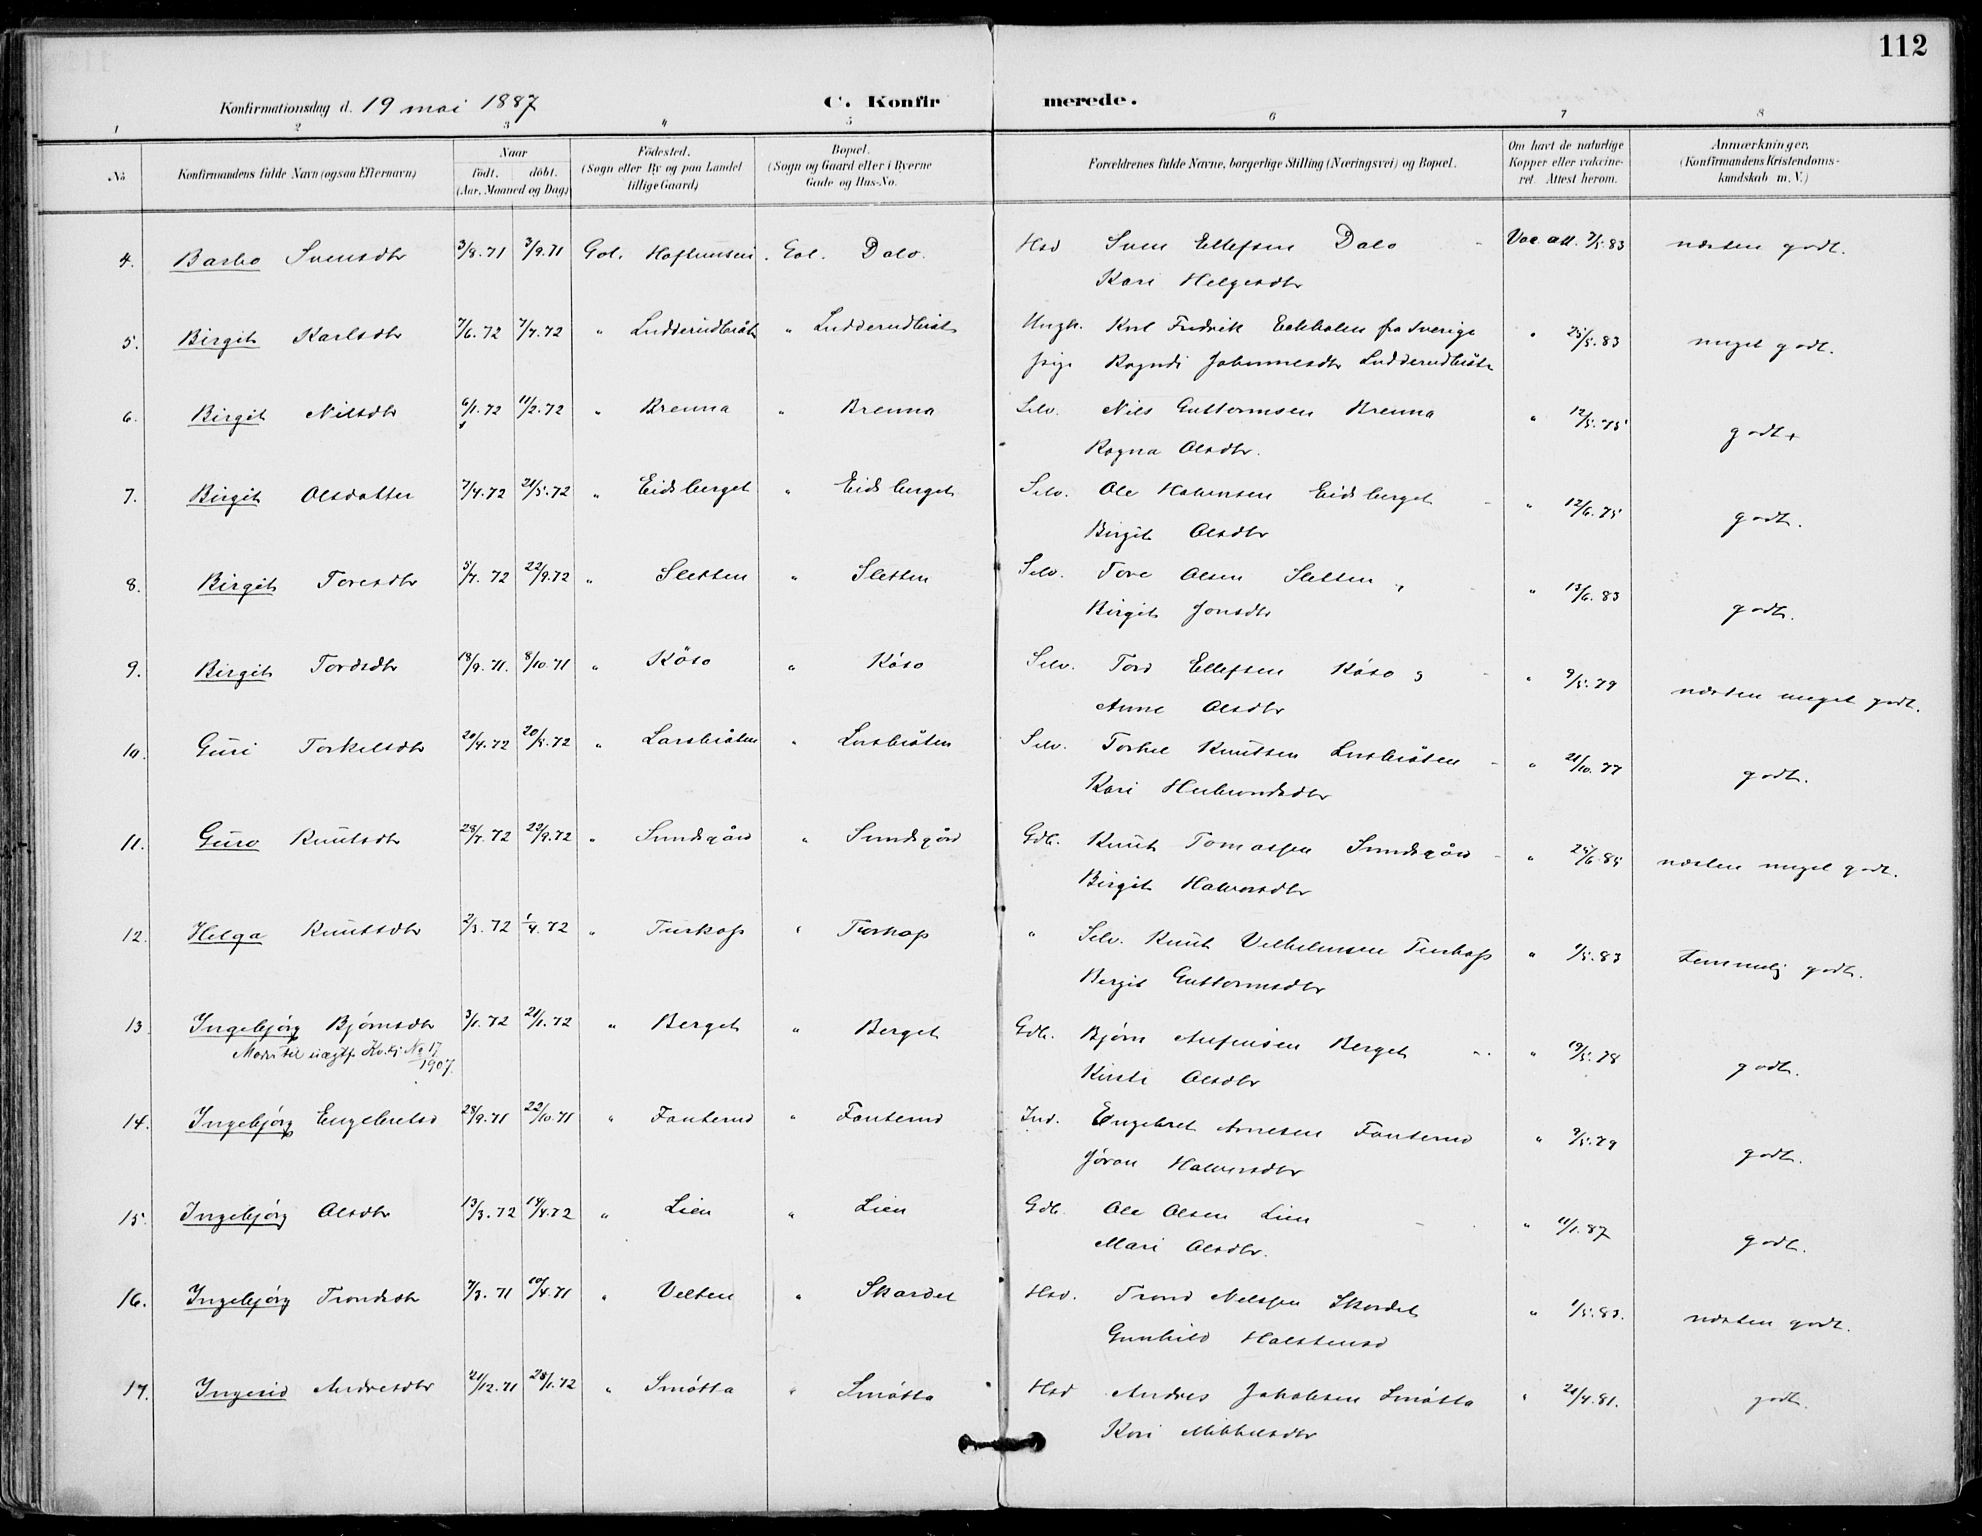 112
Konfirmationsdag d. 19 mai 1887
C. Konfirmerede.
1 2 3 4 5 6 7 8
No
Konfirmandens fulde Navn (ogsaa Efternavn)
Naar
født. døbt.
(Aar, Maaned og Dag)
Fødested.
(Sogn eller By og paa Landet
tillige Gaard)
Bopæl.
(Sogn og Gaard eller i Byerne
Gade og Hus-No.
Forældrenes fulde Navne, borgerlige Stilling (Næringsvei) og Bopæl.
Om havt de naturlige
Kopper eller vakcine-
ret. Attest herom.
Anmærkninger,
(Konfirmandens Kristendoms-
kundskab m. V.)
4. Barbo Svensdtr 3/8.71 3/9.71 Gol. Gol. Dalo. Hsd Sven Ellefsen Dalo Vac. att. 83 næsten godt.
Kari Helgesdtr
5. Birgit Karlsdtr 7/6.72 7/7.72 " Ludderudbråt " Ludderudbråt Ungk. Karl Fredrik fra Sverige " 25/5.83 meget godt.
pige Ragndi Johannesdtr Ludderudbråt
6. Birgit Nilsdtr 6/1.72 11/2.72 " Brenna " Brenna Selv. Nils Guttormsen Brenna " 12/5.75 godt
Ragna Olsdtr.
7. Birgit Olsdatter 7/4.72 21/5.72 " Eidsberget " Eidsberget Selv. Ole Halvorsen Eidsberget " 12/6.75 godt.
Birgit Olsdtr
8. Birgit Toresdtr 5/7.72 22/9.72 " Sletten " Sletten Selv. Tore Olsen Sletten " 13/6.83 godt.
Birgit Jonsdtr
9. Birgit Tordsdtr 18/9.71. 8/10.71 " Köso " Köso Selv. Tord Ellefsen Köso " 9/5.79 næsten meget godt.
Anne Olsdtr
10. Guri Torkelsdtr 20/4.72 20/5.72 " Larsbråten " Larsbråten Selv. Torkel Knutsen Larsbråten " 21/10.77 godt.
Kari Herbrandsdtr
11. Guro Knutsdtr 28/7.72 22/9.72 " Sundsgård " Sundsgård Gdb. Knut Tomassen Sundsgård " 25/6.85 næsten meget godt.
Birgit Halvorsdtr
12. Helga Knutsdtr 2/3.72 1/4.72 " " " Selv. Knut Vilhelmsen " 1/5.83 temmelig godt.
Bergit Guttormsdtr
13 Ingebjørg Bjørnsdtr 3/1.72 21/1.72 " Berget " Berget Gdb. Bjørn Arfinsen Berget " 19/5.78 godt.
Moder til uægtf. No 17
1907.
Kirsti Olsdtr
14. Ingebjørg Engebretsd 28/9.71 22/10.71 " Fauterud " Fauterud Ind. Engebret Arnesen Fauterud " 9/5.79 godt.
Jøran Halvorsdtr
15. Ingebjørg Olsdtr 13/3.72 14/4.72 " Lien " Lien Gdb. Ole Olsen Lien " 11/1.87 godt.
Mari Olsdtr.
16. Ingebjørg Trondsdtr 7/3.71 10/4.71 " Velten " Skardet Hsd. Trond Nilssen Skardet " 1/5.83. næsten godt.
Gunhild Halstensd
17. Ingerid Andresdtr 21/12.71 28/1.72 " Smøtta " Smøtta Hsd Andres Jakobsen Smøtta " 21/4.81. godt.
Kari Mikkelsdtr